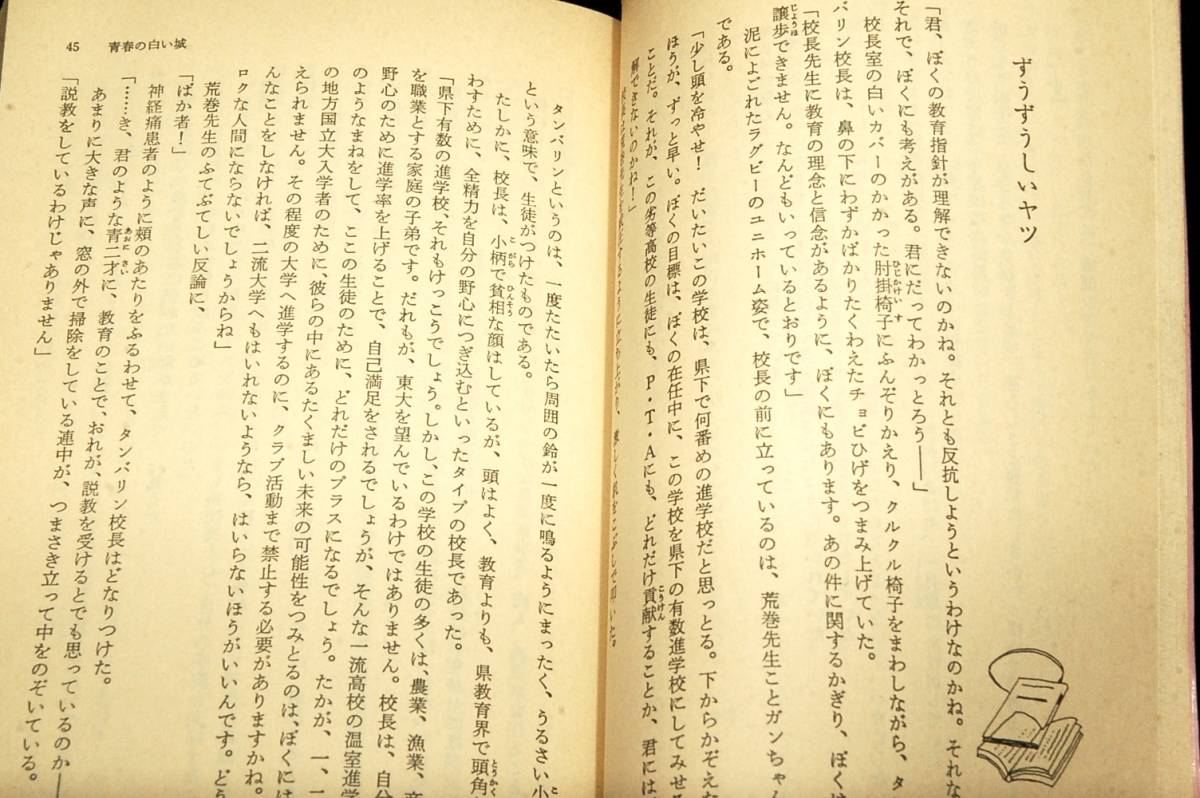 ずうずうしいヤツ
「君、ぼくの教育指針が理解できないのかね。それとも反抗しようというわけなのかね。それな
それで、ぼくにも考えがある。君にだってわかっとろう――」
校長室の白いカバーのかかった肘掛椅子にふんぞりかえり、クルクル椅子をまわしながら、タ
バリン校長は、鼻の下にわずかばかりたくわえたチョビひげをつまみ上げていた。
「校長先生に教育の理念と信念があるように、ぼくにもあります。あの件に関するかぎり、ぼくは
譲歩できません。なんどもいっているとおりです」
泥によごれたラグビーのユニホーム姿で、校長の前に立っているのは、荒巻先生ことガンちゃん
である。
「少し頭を冷やせ！　だいたいこの学校は、県下で何番めの進学校だと思っとる。下からかぞえ
ほうが、ずっと早い。ぼくの目標は、ぼくの在任中に、この学校を県下の有数進学校にしてみせる
ことだ。それが、この劣等高校の生徒にも、P・T・Aにも、どれだけ貢献することか、君には
解できないのかね！」
タンバリンというのは、一度たたいたら周囲の鈴が一度に鳴るようにまったく、うるさい小
という意味で、生徒がつけたものである。
たしかに、校長は、小柄で貧相な顔はしているが、頭はよく、教育よりも、県教育界で頭角
わすために、全精力を自分の野心につぎ込むといったタイプの校長であった。
「県下有数の進学校、それもけっこうでしょう。しかし、この学校の生徒の多くは、農業、漁業、商
を職業とする家庭の子弟です。だれもが、東大を望んでいるわけではありません。校長は、自分
野心のために進学率を上げることで、自己満足をされるでしょうが、そんな一流高校の温室進学
のようなまねをして、ここの生徒のために、どれだけのプラスになるでしょう。たかが、一、二
の地方国立大入学者のために、彼らの中にあるたくましい未来の可能性をつみとるのは、ぼくには
えられません。その程度の大学へ進学するのに、クラブ活動まで禁止する必要がありますかね。
んなことをしなければ、二流大学へもはいれないようなら、はいらないほうがいいんです。どう
ロクな人間にならないでしょうからね」
荒巻先生のふてぶてしい反論に、
「ばか者！」
神経痛患者のように頬のあたりをふるわせて、タンバリン校長はどなりつけた。
「……き、君のような青二才に、教育のことで、おれが、説教を受けるとでも思っているのか――
あまりに大きな声に、窓の外で掃除をしている連中が、つまさき立って中をのぞいている。
「説教をしているわけじゃありません」
45　青春の白い城